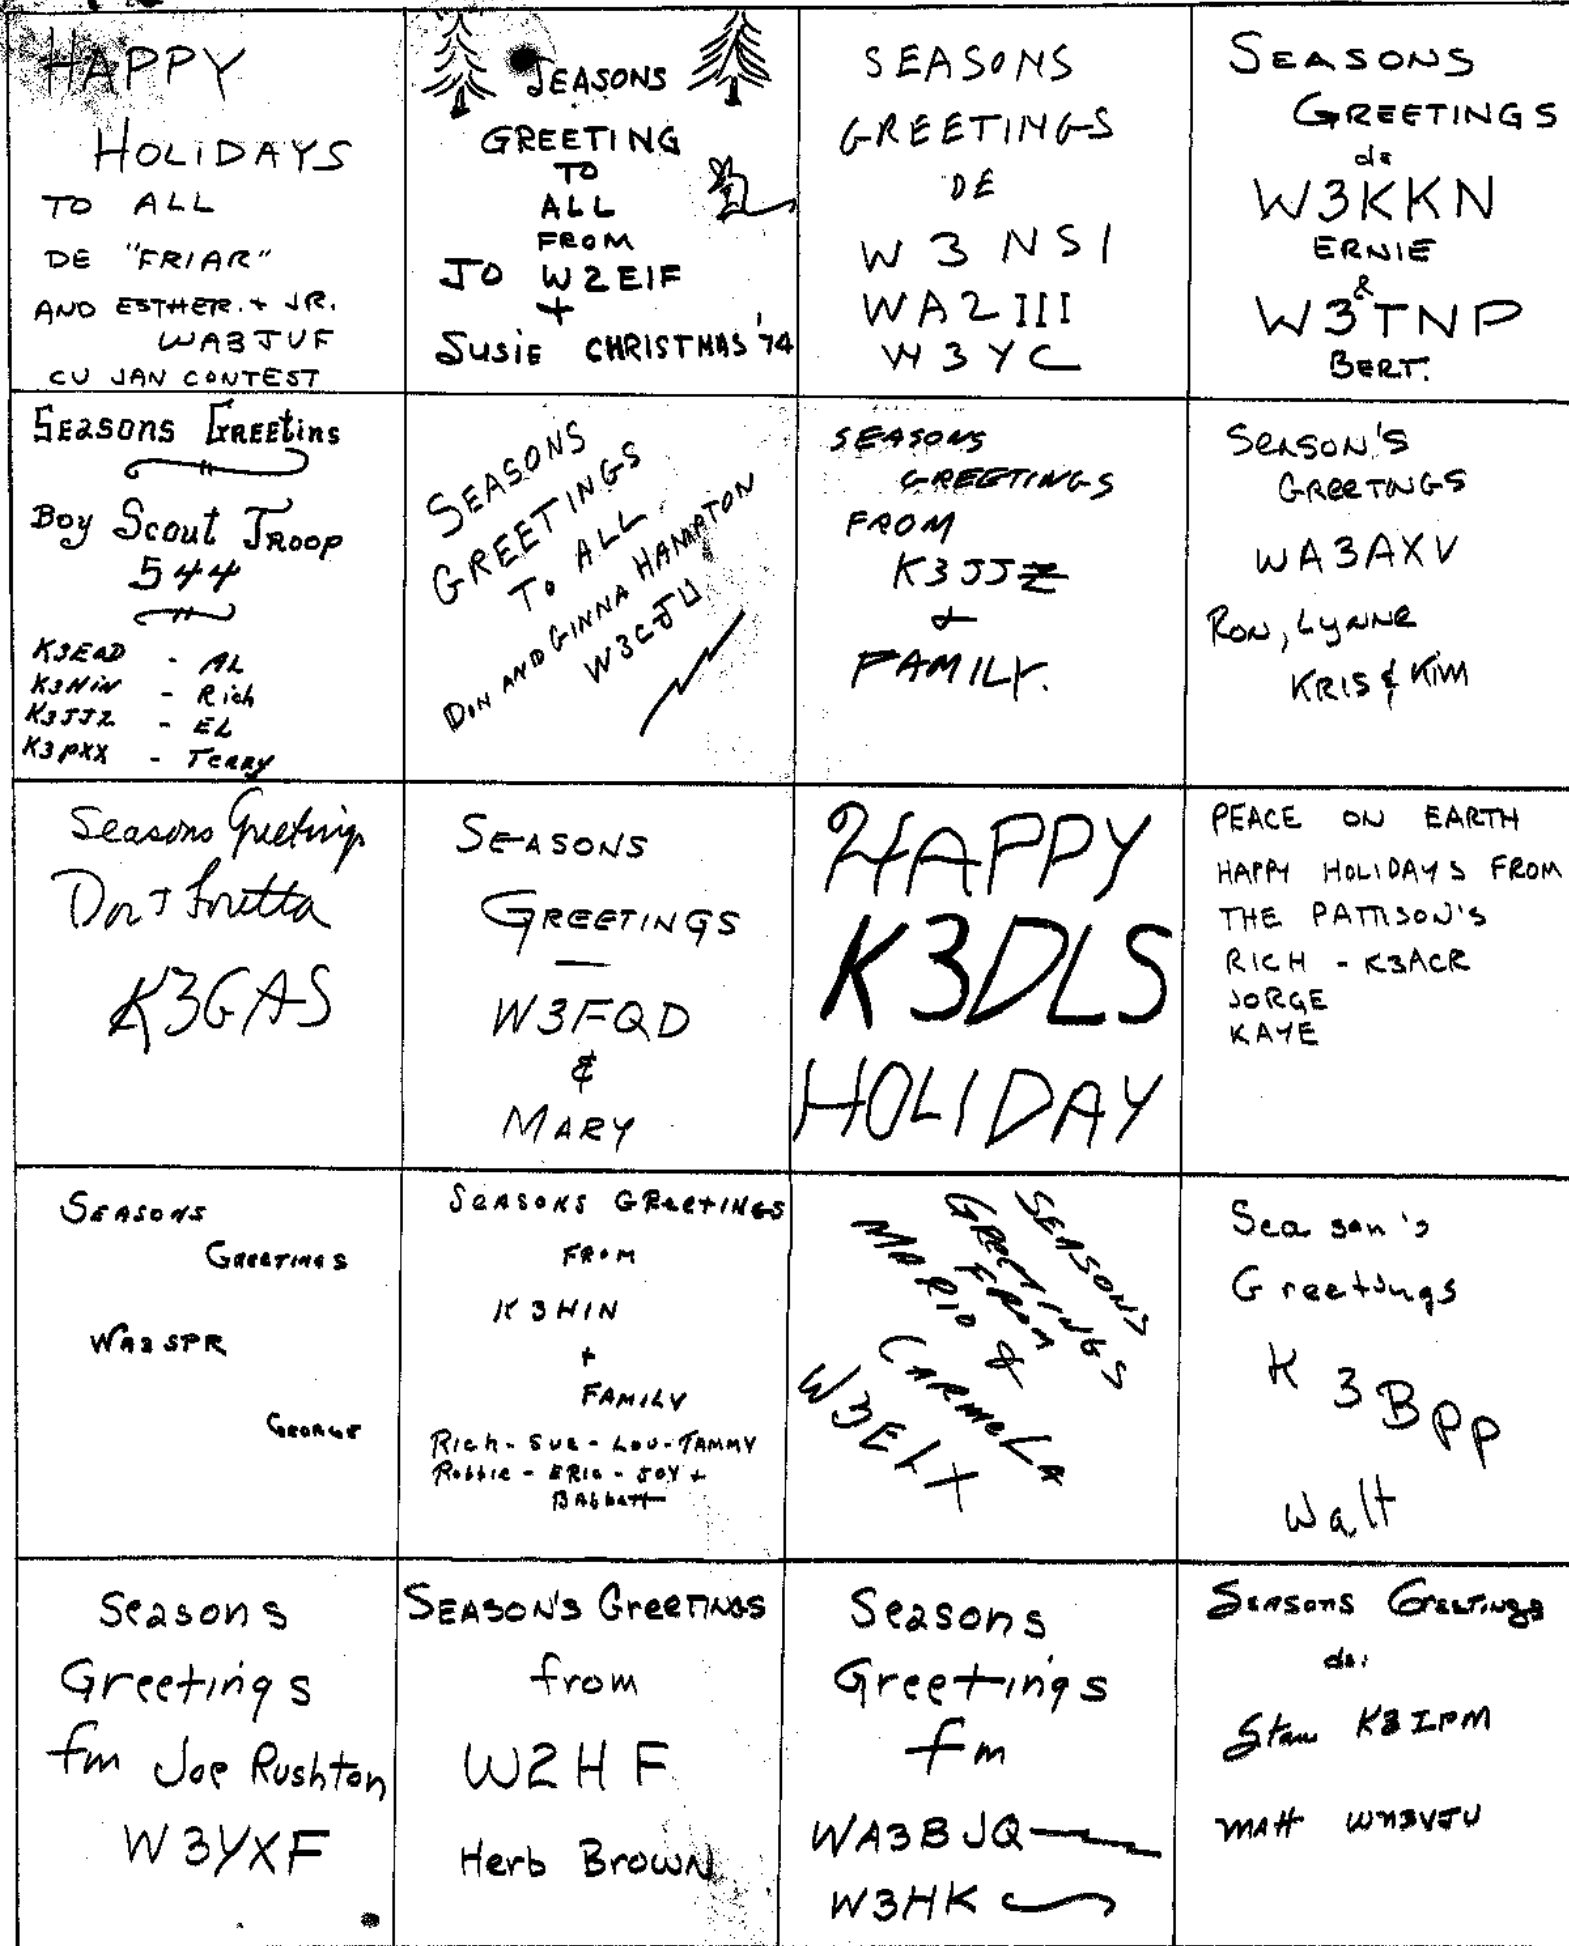 HAPPY
HOLIDAYS
TO ALL
DE "FRIAR"
AND ESTHER. + JR.
WA3JUF
CU JAN CONTEST
SEASONS
GREETING
TO
ALL
FROM
JO W2EIF
+
SUSIE CHRISTMAS '74
SEASONS
GREETINGS
DE
W3NSI
WA2III
W3YC
SEASONS
GREETINGS
de
W3KKN
ERNIE
&
W3TNP
BERT.
SEASONS GREETINS
Boy Scout TROOP
544
K3EAD - AL
K3HIN - Rich
K3JJZ - EL
K3PXX - TERRY
SEASONS
GREETINGS
TO ALL
DON AND GINNA HAMPTON
W3CJU
SEASONS
GREETINGS
FROM
K3JJZ
&
FAMILY.
SEASON'S
GREETINGS
WA3AXV
RON, LYNNE
KRIS & KIM
Seasons Greetings
Don & Loretta
K3GAS
SEASONS
GREETINGS
—
W3FQD
&
MARY
HAPPY
K3DLS
HOLIDAY
PEACE ON EARTH
HAPPY HOLIDAYS FROM
THE PATTISON'S
RICH - K3ACR
JORGE
KAYE
SEASONS
GREETINGS
WA3SPR
GEORGE
SEASONS GREETINGS
FROM
K3HIN
+
FAMILY
Rich - SUE - LOU - TAMMY
Robbie - ERIC - JOY +
SEASONS
GREETINGS
FROM
MARIO &
CARMELA
W3ELX
Season's
Greetings
K3BPP
Walt
Seasons
Greetings
fm Joe Rushton
W3YXF
SEASON'S GreeTINGS
from
W2HF
Herb Brown
Seasons
Greetings
fm
WA3BJQ
W3HK
SEASONS GREETINGS
de:
Stan K3IPM
MATT WN3VJU